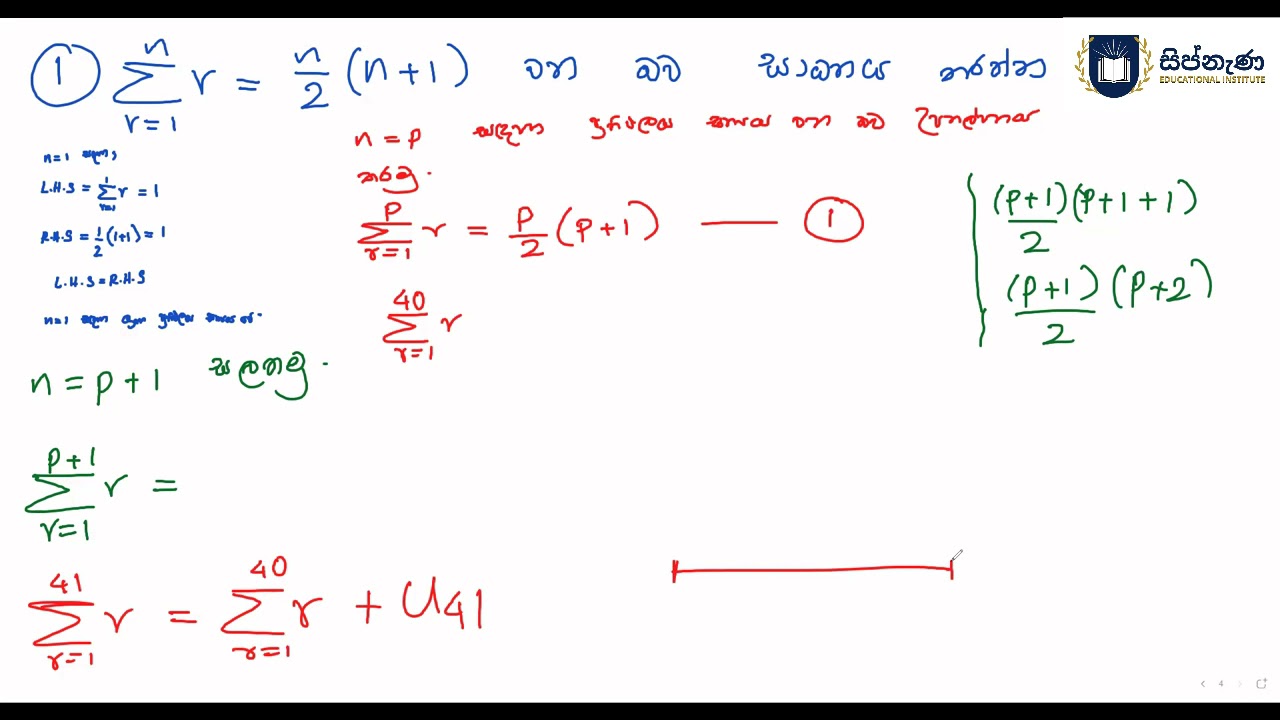 ① \sum_{r=1}^{n} r = \frac{n}{2}(n+1) වන බව සාධනය කරන්න
සිප්නැණ
EDUCATIONAL INSTITUTE
n=1 සඳහා,
L.H.S = \sum_{r=1}^{1} r = 1
R.H.S = \frac{1}{2}(1+1) = 1
L.H.S = R.H.S
n=1 සඳහා ප්‍රතිඵලය සත්‍ය වේ.
n = p සඳහා ප්‍රතිඵලය සත්‍ය වන බව උපකල්පනය
කරමු.
\sum_{r=1}^{p} r = \frac{p}{2}(p+1) —— ①
\sum_{r=1}^{40} r
\frac{(p+1)}{2}(p+1+1)
\frac{(p+1)}{2}(p+2)
n = p+1 සලකමු.
\sum_{r=1}^{p+1} r =
\sum_{r=1}^{41} r = \sum_{r=1}^{40} r + U_{41}
4